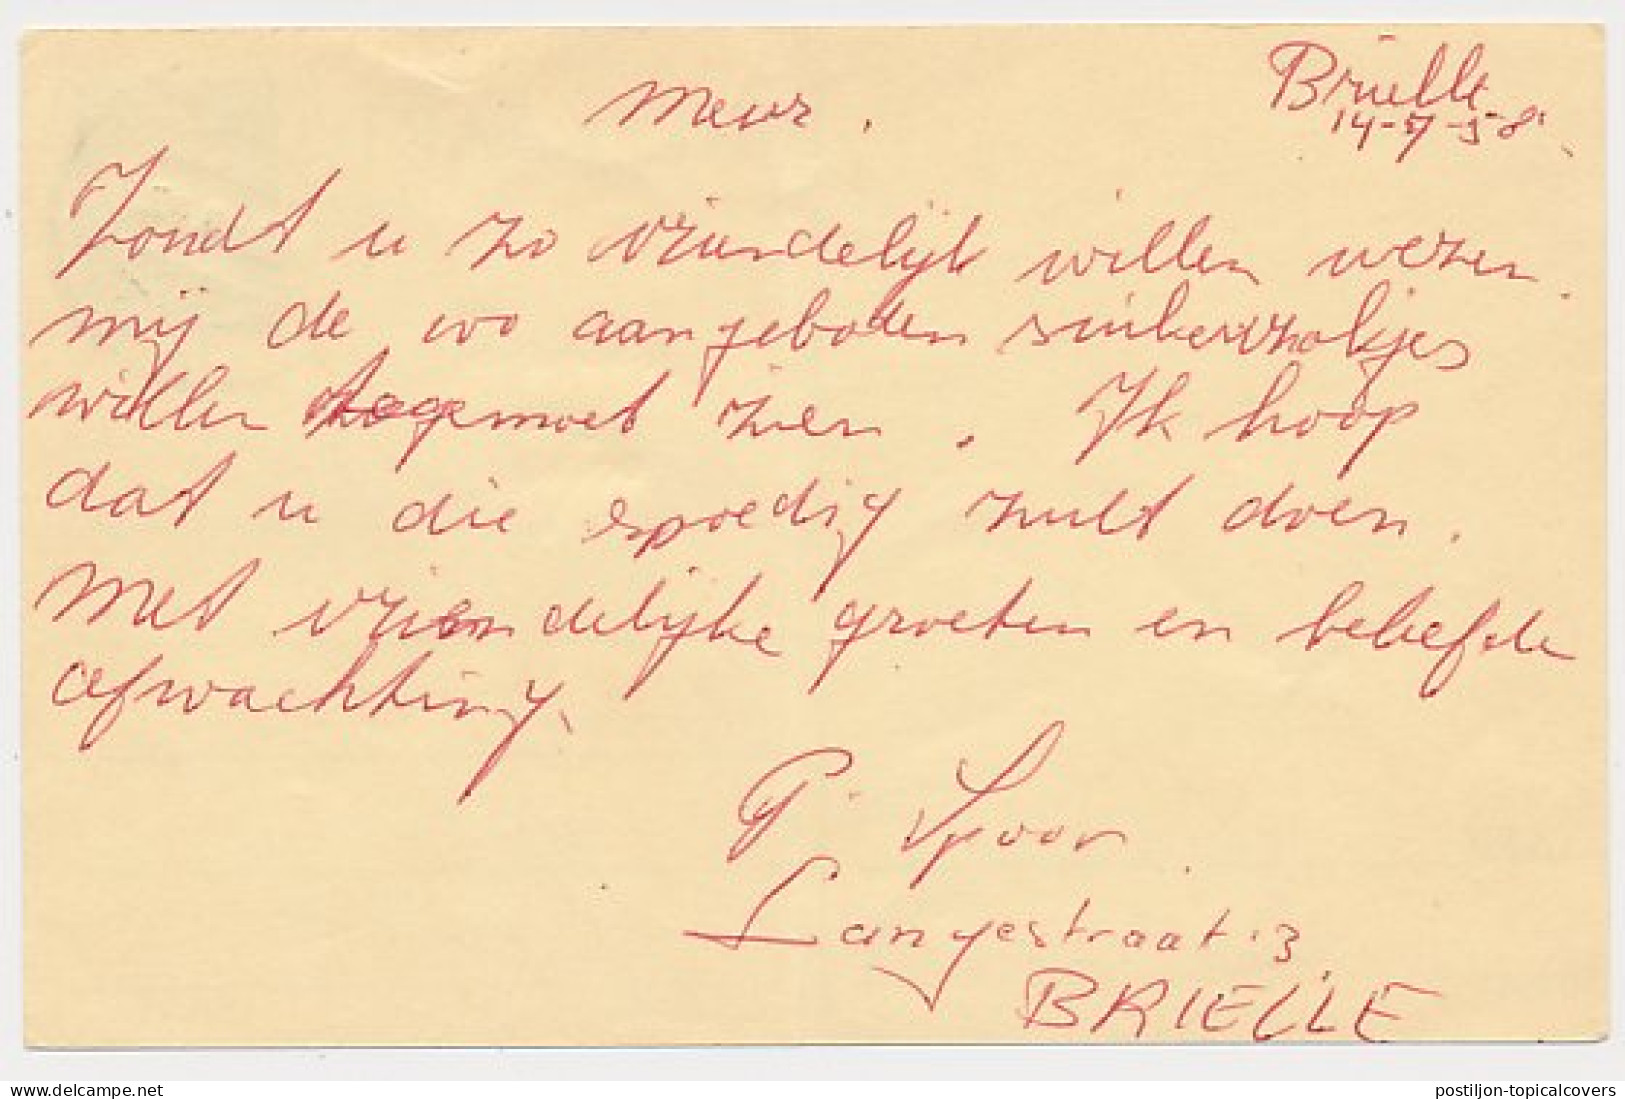 Brielle
14-7-58.
Meur.
Zondt u zo vriendelijk willen wezen.
mij de vvo aangeboden suikerzakjes
willen tegemoet zien. Ik hoop
dat u die spoedig zult doen.
Met vriendelijke groeten en beliefde
afwachting.
P. Spoor.
Langestraat 3
BRIELLE
postiljon-topicalcovers